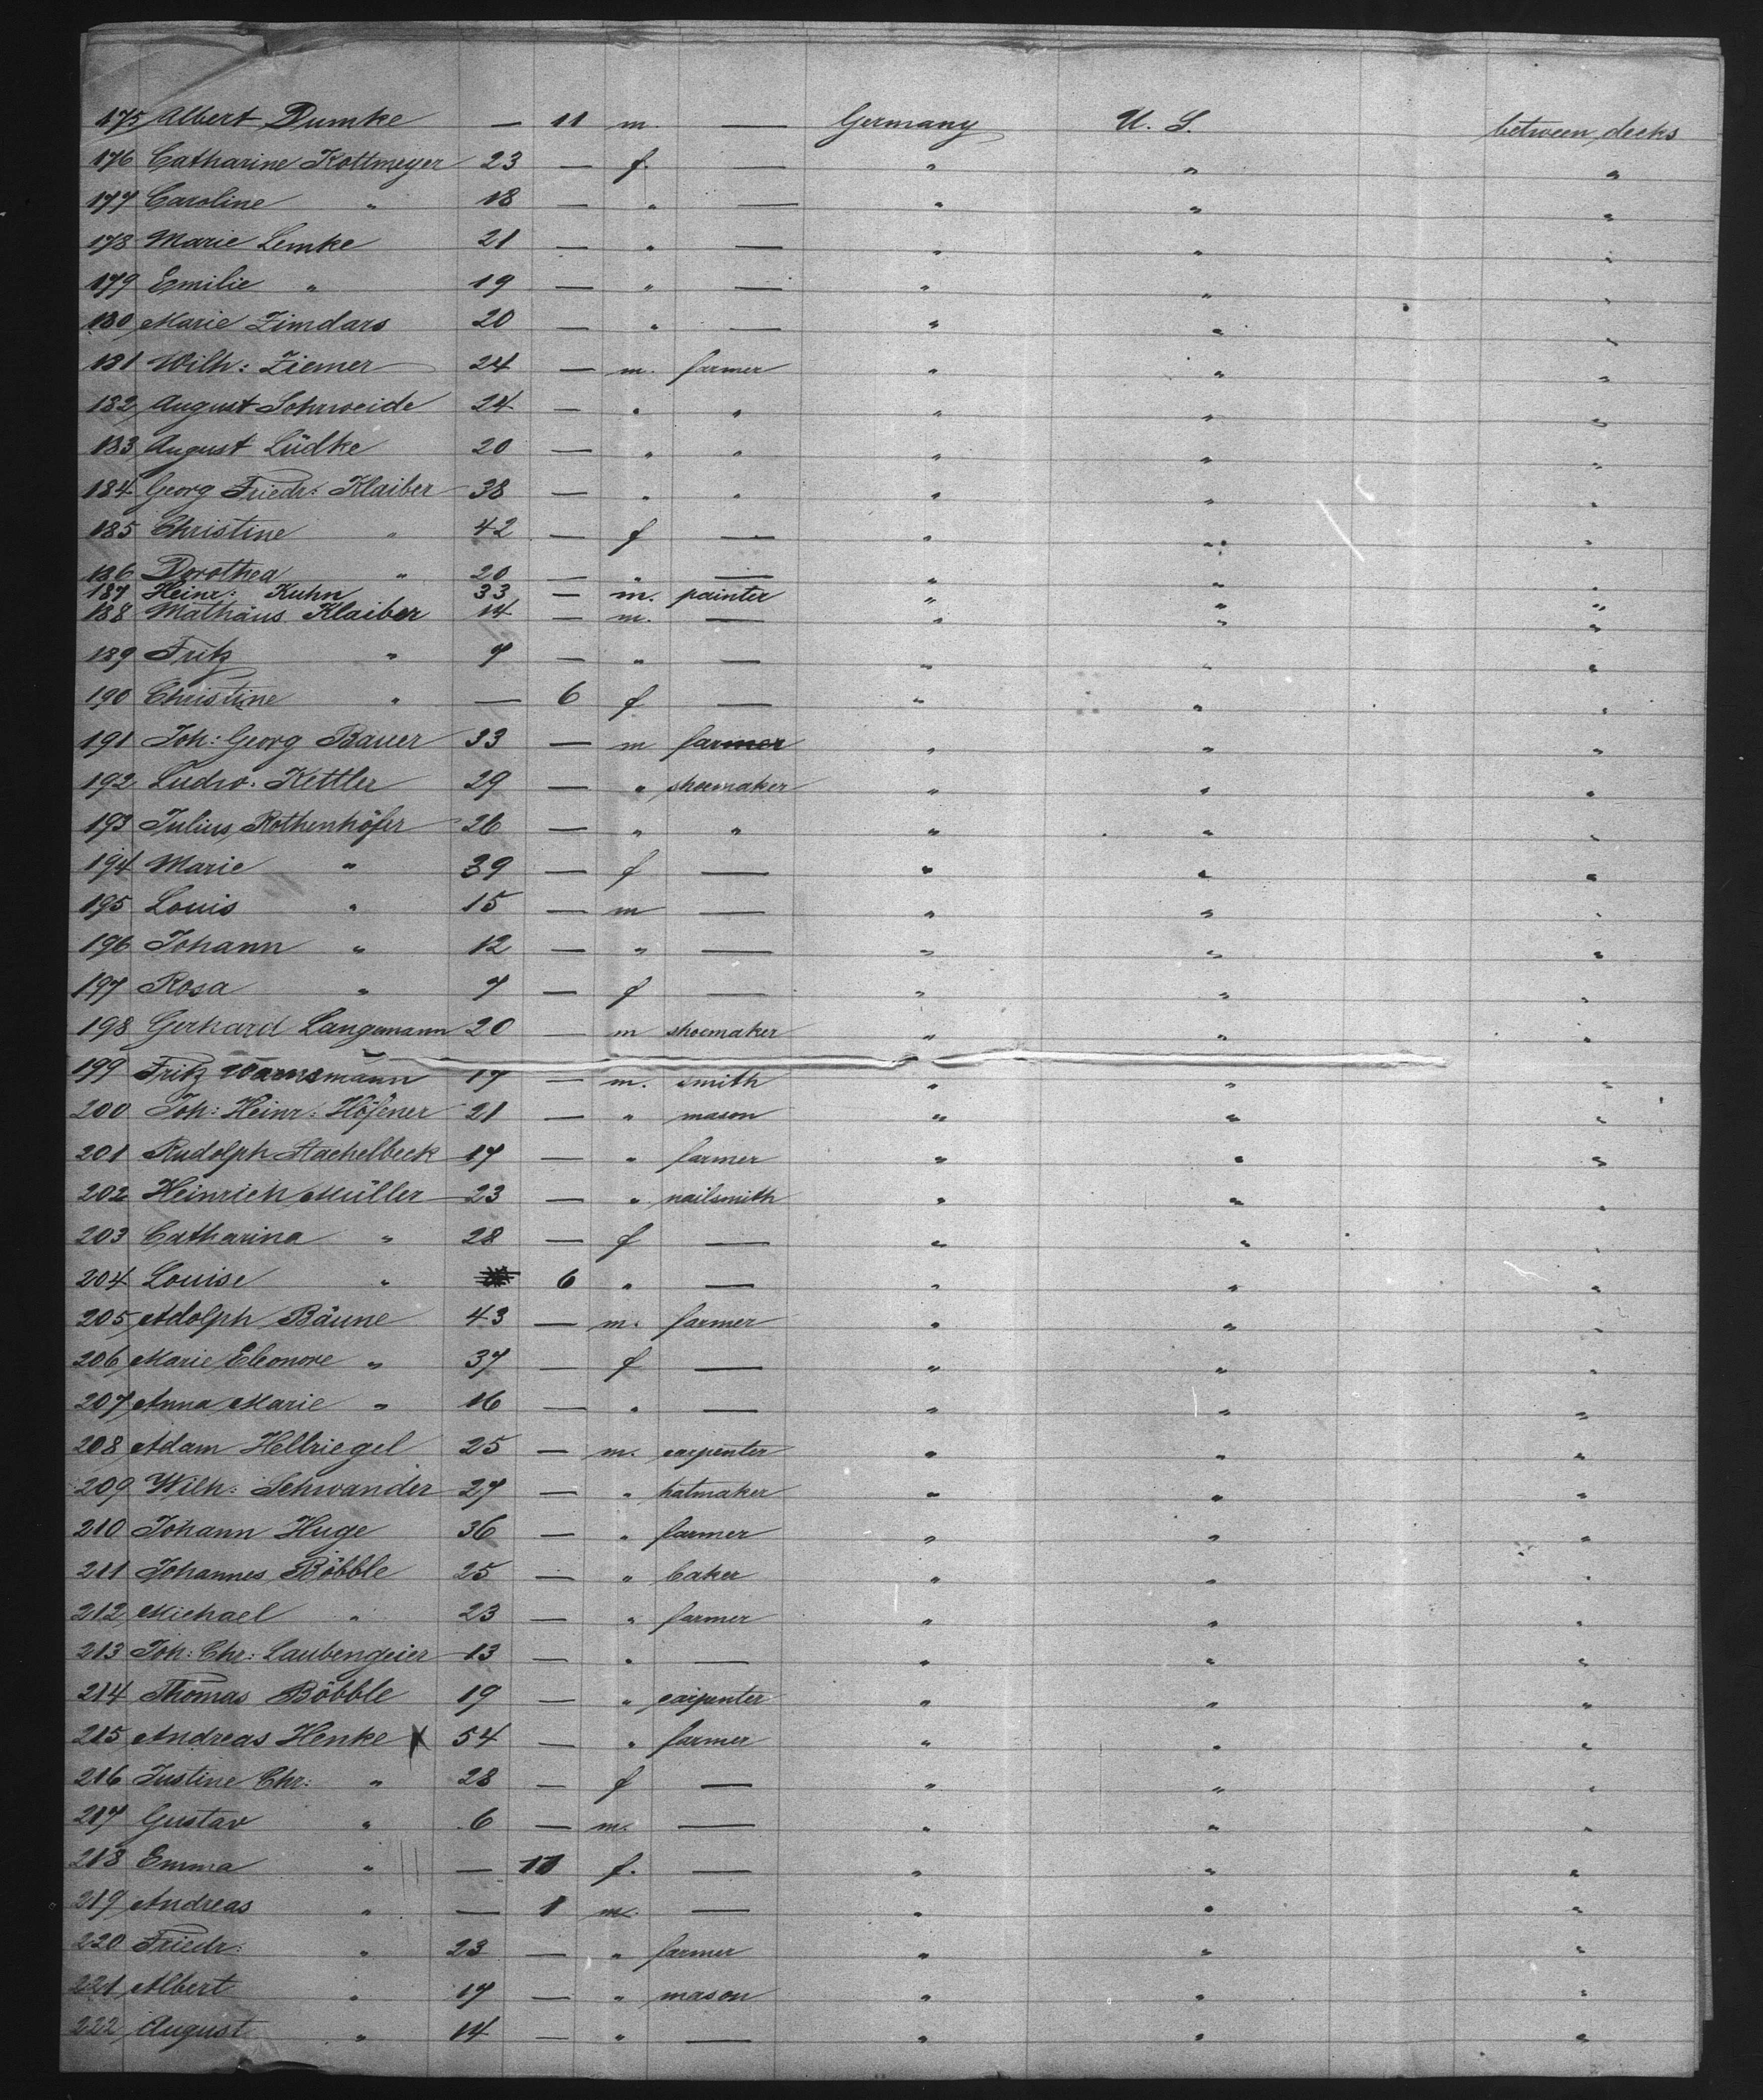 175 Albert Dumke — 11 m. — Germany U. S. between decks
176 Catharine Kottmeyer 23 — f. — " " "
177 Caroline " 18 — " — " " "
178 Marie Lemke 21 — " — " " "
179 Emilie " 19 — " — " " "
180 Marie Zimdars 20 — " — " " "
181 Wilh: Ziemer 24 — m. farmer " " "
182 August Schrweide 24 — " " " " "
183 August Lüdke 20 — " " " " "
184 Georg Friedr: Klaiber 38 — " " " " "
185 Christine " 42 — f — " " "
186 Dorothea " 20 — " — " " "
187 Heinr: Kuhn 33 — m. painter " " "
188 Mathäus Klaiber 14 — m. — " " "
189 Fritz " 7 — " — " " "
190 Christine " — 6 f — " " "
191 Joh: Georg Bauer 33 — m farmer " " "
192 Ludw: Kettler 29 — " shoemaker " " "
193 Julius Rothenhöfer 26 — " " " " "
194 Marie " 39 — f — " " "
195 Louis " 15 — m — " " "
196 Johann " 12 — " — " " "
197 Rosa " 7 — f — " " "
198 Gerhard Langemann 20 — m shoemaker " " "
199 Fritz Warnsmann 17 — m. smith " " "
200 Joh: Heinr: Höfener 21 — " mason " " "
201 Rudolph Stachelbeck 17 — " farmer " " "
202 Heinrich Müller 23 — " nailsmith " " "
203 Catharina " 28 — f — " " "
204 Louise " 6 " — " " "
205 Adolph Bäune 43 — m. farmer " " "
206 Marie Eleonore " 37 — f — " " "
207 Anna Marie " 16 — " — " " "
208 Adam Hellriegel 25 — m. carpenter " " "
209 Wilh: Schwander 27 — " hatmaker " " "
210 Johann Huge 36 — " farmer " " "
211 Johannes Böbble 25 — " baker " " "
212 Michael " 23 — " farmer " " "
213 Joh: Chr: Laubengeier 13 — " — " " "
214 Thomas Böbble 19 — " carpenter " " "
215 Andreas Henke X 54 — " farmer " " "
216 Justine Chr: " 28 — f — " " "
217 Gustav " 6 — m. — " " "
218 Emma " — 11 f. — " " "
219 Andreas " — 1 m. — " " "
220 Friedr: " 23 — " farmer " " "
221 Albert " 17 — " mason " " "
222 August " 14 — " — " " "